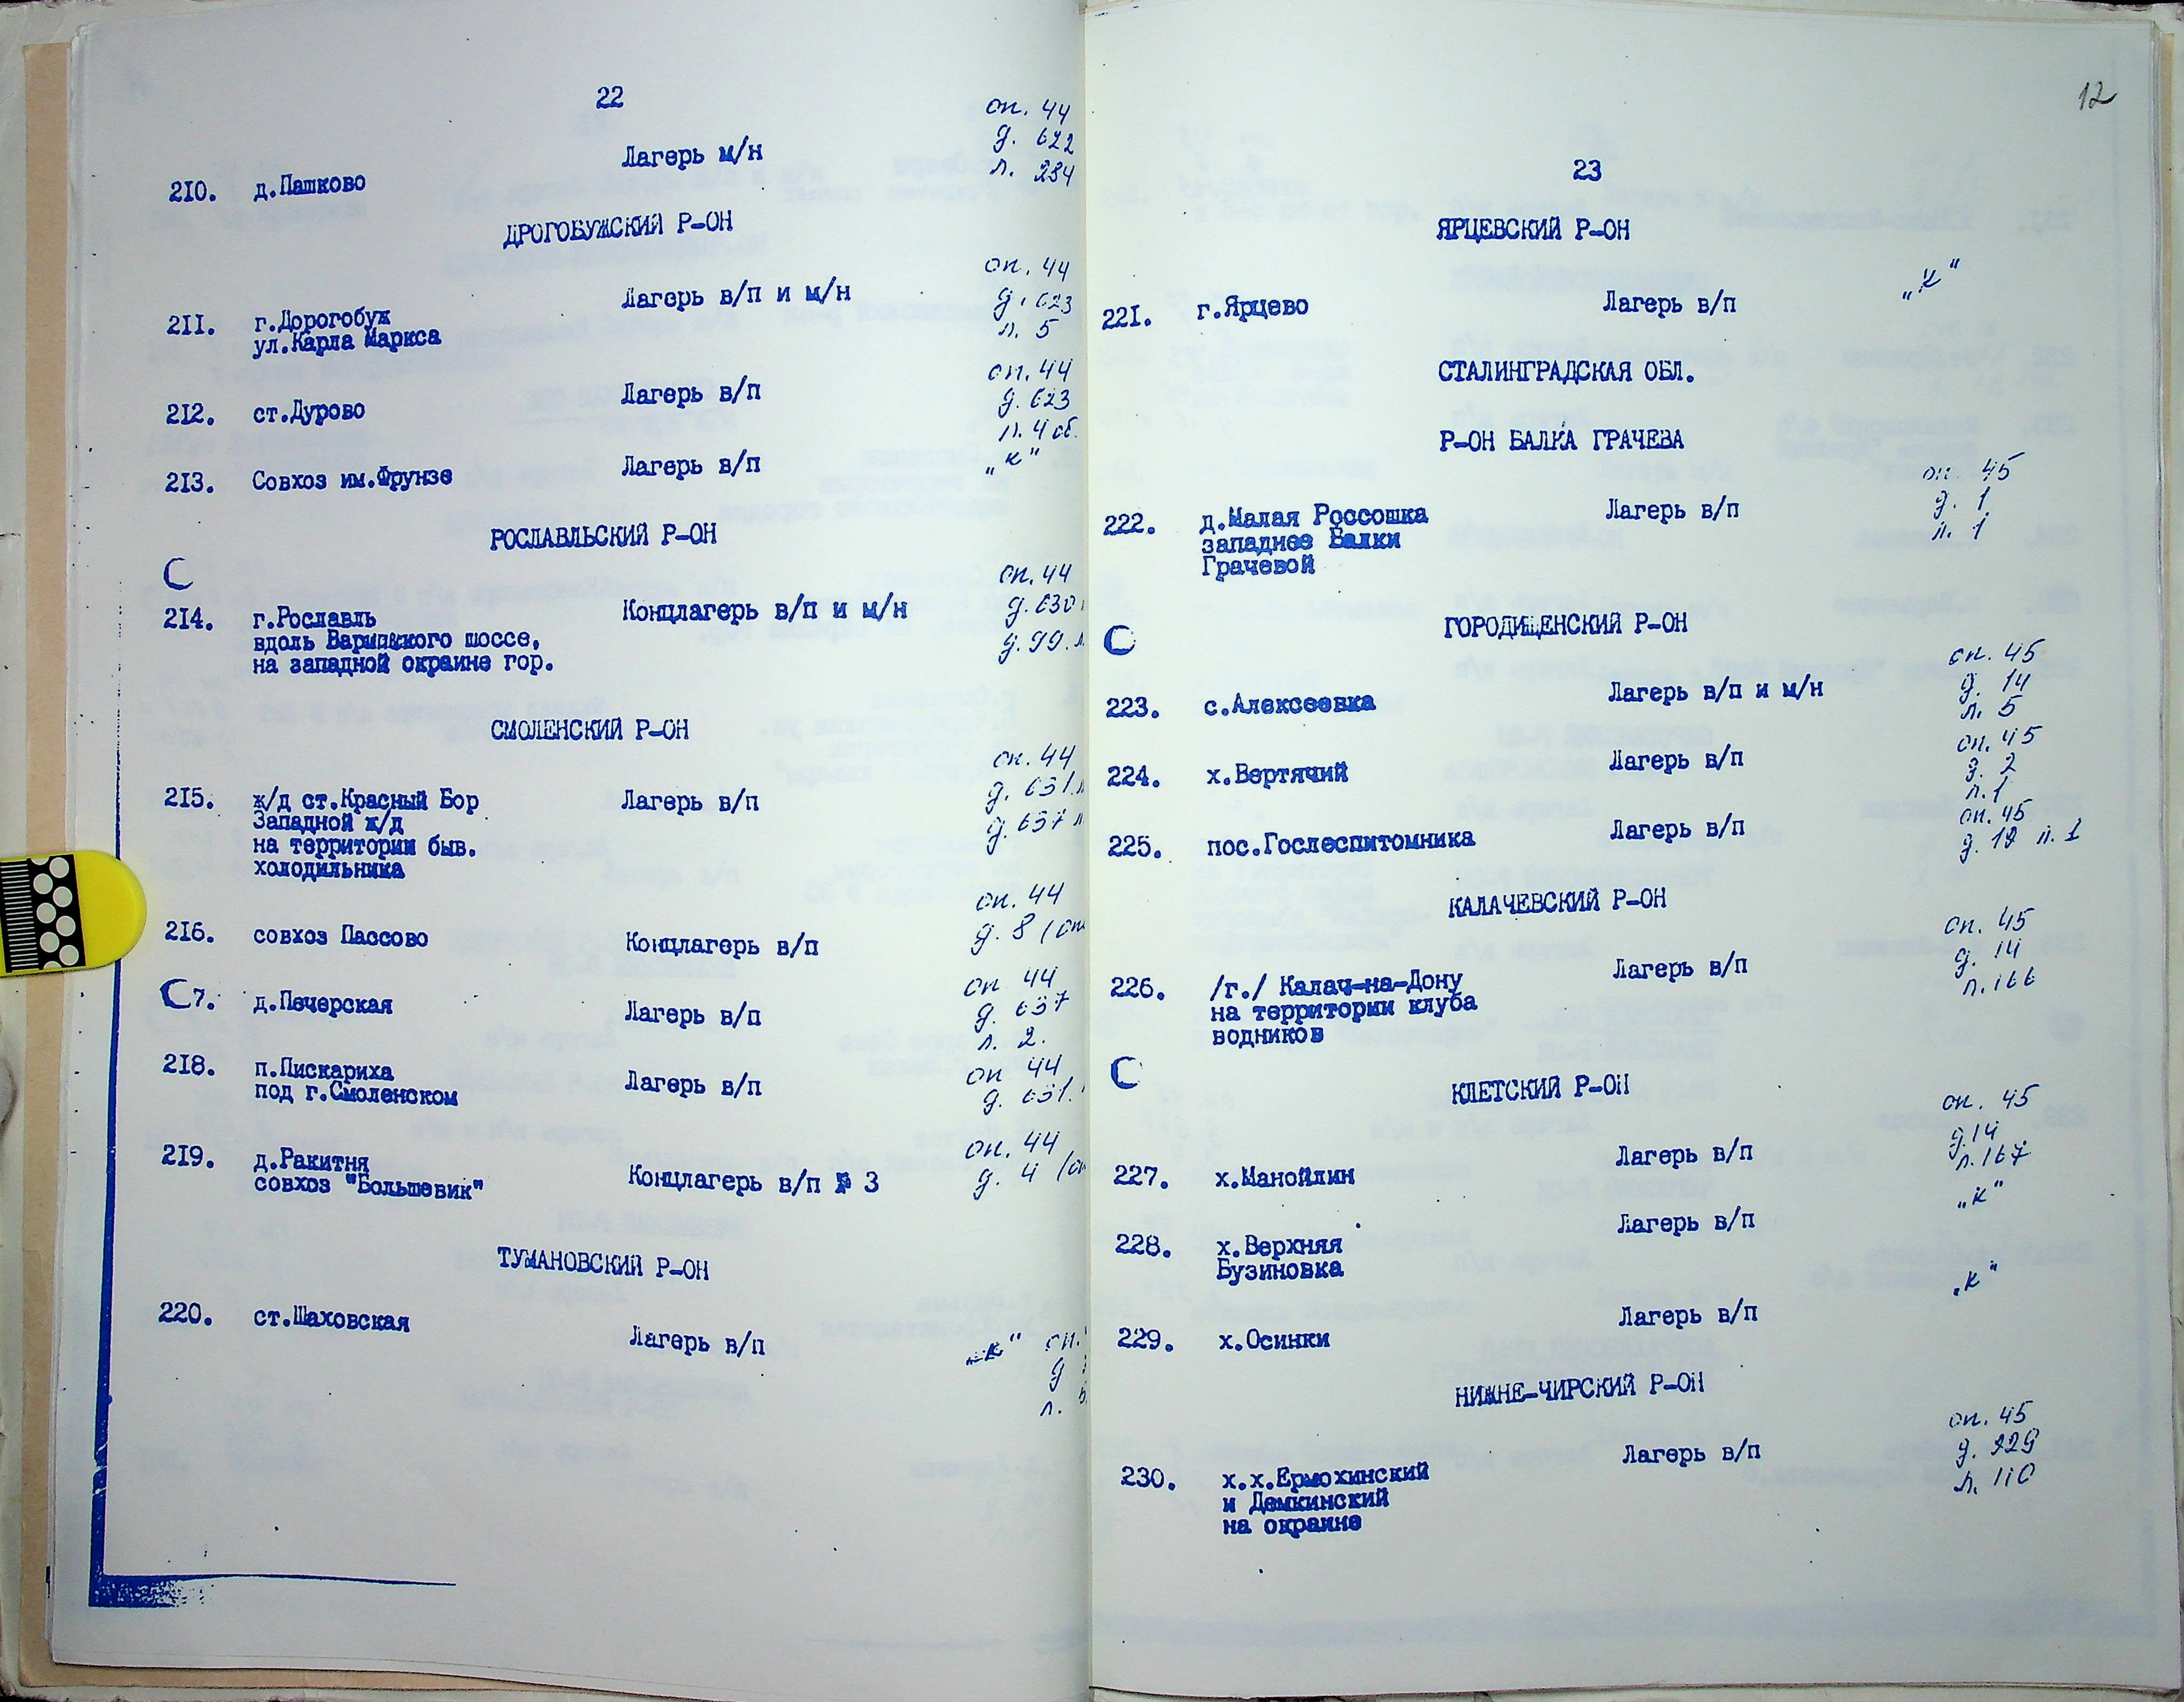 22
оп. 44
д. 622
л. 284
210. д.Пашково Лагерь м/н
ДРОГОБУЖСКИЙ Р-ОН
оп. 44
д. 623
л. 5
211. г.Дорогобуж Лагерь в/п и м/н
ул.Карла Маркса
оп. 44
д. 623
л. 4 об.
212. ст.Дурово Лагерь в/п
213. Совхоз им.Фрунзе Лагерь в/п „к"
РОСЛАВЛЬСКИЙ Р-ОН
оп. 44
д. 630
д. 99.
214. г.Рославль Концлагерь в/п и м/н
вдоль Варшавского шоссе,
на западной окраине гор.
СМОЛЕНСКИЙ Р-ОН
оп. 44
д. 631
д. 657
215. ж/д ст.Красный Бор Лагерь в/п
Западной ж/д
на территории быв.
холодильника
оп. 44
д. 8
216. совхоз Пассово Концлагерь в/п
оп 44
д. 657
л. 2.
7. д.Печерская Лагерь в/п
оп 44
д. 631.
218. п.Пискариха Лагерь в/п
под г.Смоленском
оп. 44
д. 4
219. д.Ракитня Концлагерь в/п № 3
совхоз "Большевик"
ТУМАНОВСКИЙ Р-ОН
220. ст.Шаховская Лагерь в/п
„к" оп.
д
л.
12
23
ЯРЦЕВСКИЙ Р-ОН
221. г.Ярцево Лагерь в/п „к"
СТАЛИНГРАДСКАЯ ОБЛ.
Р-ОН БАЛКА ГРАЧЕВА
оп. 45
д. 1
л. 1
222. д.Малая Россошка Лагерь в/п
западнее Балки
Грачевой
ГОРОДИЩЕНСКИЙ Р-ОН
оп. 45
д. 14
л. 5
223. с.Алексеевка Лагерь в/п и м/н
оп. 45
д. 2
л. 1
224. х.Вертячий Лагерь в/п
оп. 45
д. 12 л. 1
225. пос.Гослеспитомника Лагерь в/п
КАЛАЧЕВСКИЙ Р-ОН
оп. 45
д. 14
л. 166
226. /г./ Калач-на-Дону Лагерь в/п
на территории клуба
водников
КЛЕТСКИЙ Р-ОН
оп. 45
д.14
л.167
227. х.Манойлин Лагерь в/п
„к"
228. х.Верхняя Лагерь в/п
Бузиновка
„к"
229. х.Осинки Лагерь в/п
НИЖНЕ-ЧИРСКИЙ Р-ОН
оп. 45
д. 229
л. 110
230. х.х.Ермохинский Лагерь в/п
и Демкинский
на окраине